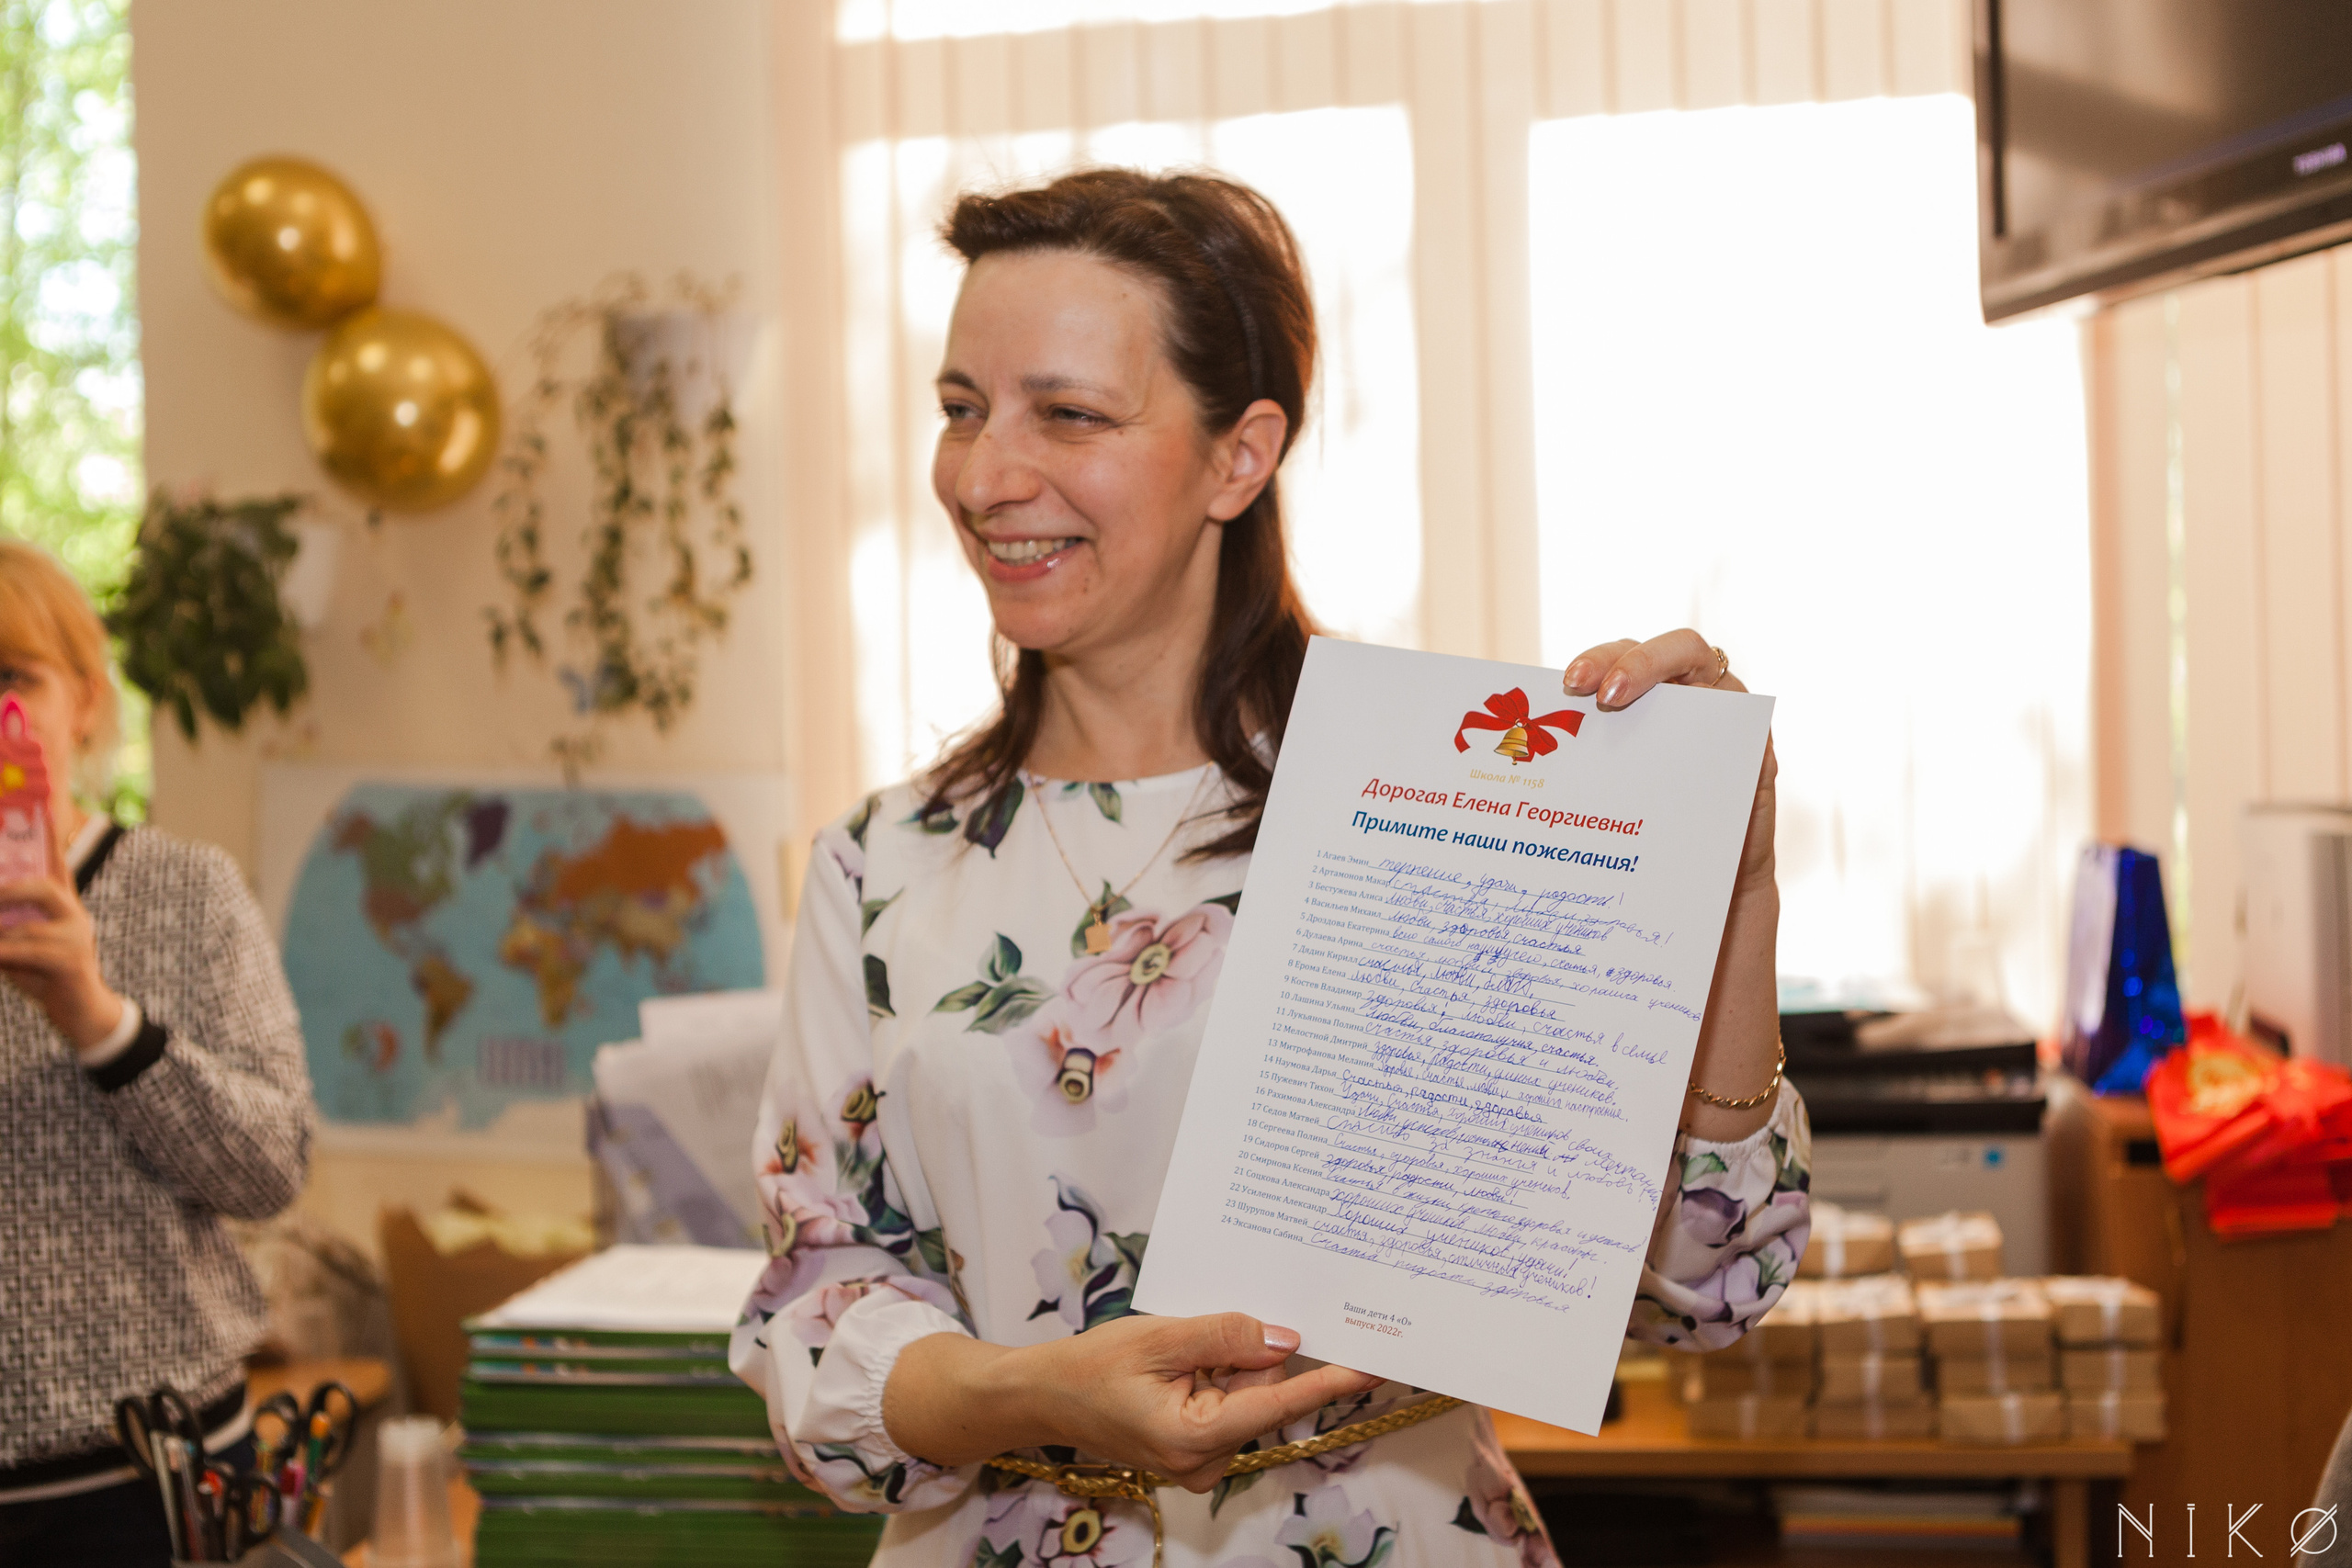 TOSHIBA
Школа № 1158
Дорогая Елена Георгиевна!
Примите наши пожелания!
1 Агаев Эмин терпение, удачи, радости!
2 Артамонов Макар счастья, любви здоровья!
3 Бестужева Алиса любви, счастья, хороших учеников
4 Васильев Михаил любви, здоровья, счастья
5 Дроздова Екатерина всего самого наилучшего, счастья, здоровья
6 Дулаева Арина счастья, любви, здоровья, хороших учеников
7 Дядин Кирилл счастья, любви,
8 Ерома Елена любви, счастья, здоровья
9 Костев Владимир здоровья, любви, счастья в семье
10 Лашина Ульяна любви, благополучия, счастья
11 Лукьянова Полина счастья, здоровья и любви.
12 Мелостной Дмитрий здоровья, радости, умных учеников.
13 Митрофанова Мелания здоровье, счастье, любви и хорошего настроения.
14 Наумова Дарья счастья, радости, здоровья
15 Пужевич Тихон Удачи, счастья, хороших учеников
16 Рахимова Александра любви, успехов, исполнения своих мечтаний
17 Седов Матвей спасибо за знания и любовь!
18 Сергеева Полина счастья, здоровья, хороших учеников!
19 Сидоров Сергей здоровья, радости, любви!
20 Смирнова Ксения счастья в жизни, крепкого здоровья и успехов!
21 Соцкова Александра хороших учеников, любви, красоты.
22 Усиленок Александр хороших учеников, удачи!
23 Шурупов Матвей счастья, здоровья, отличных учеников!
24 Эксанова Сабина Счастья радости здоровья
Ваши дети 4 «О»
выпуск 2022г.
NIKØ